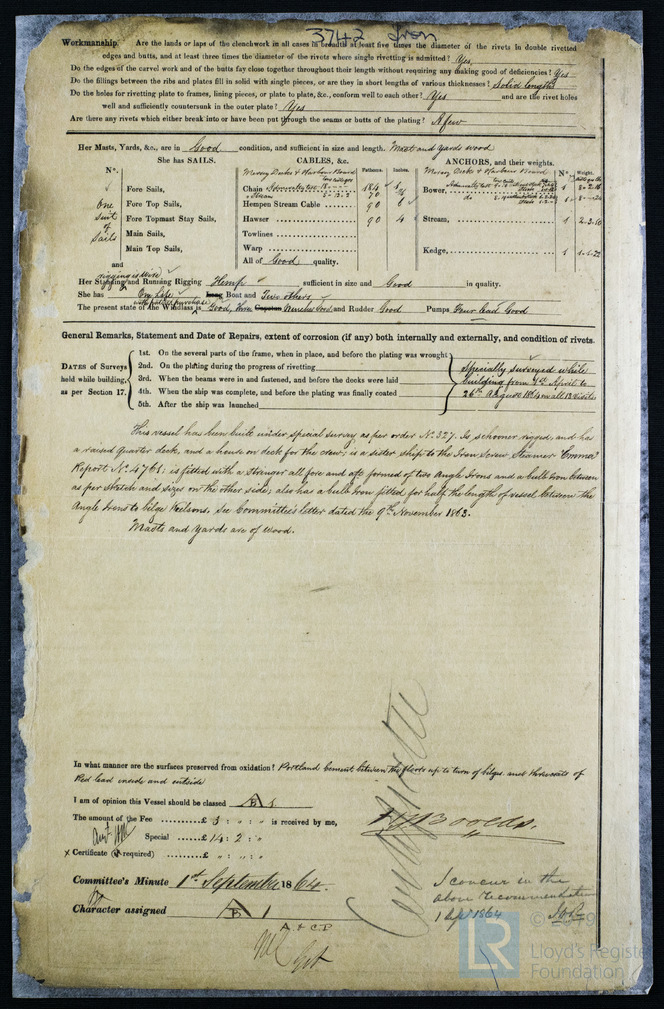 3742 Iron
Workmanship. Are the lands or laps of the clenchwork in all cases in breadth at least five times the diameter of the rivets in double rivetted
edges and butts, and at least three times the diameter of the rivets where single rivetting is admitted? Yes
Do the edges of the carvel work and of the butts fay close together throughout their length without requiring any making good of deficiencies? Yes
Do the fillings between the ribs and plates fill in solid with single pieces, or are they in short lengths of various thicknesses? Solid lengths
Do the holes for rivetting plate to frames, lining pieces, or plate to plate, &c., conform well to each other? Yes and are the rivet holes
well and sufficiently countersunk in the outer plate? Yes
Are there any rivets which either break into or have been put through the seams or butts of the plating? A few
Her Masts, Yards, &c., are in Good condition, and sufficient in size and length. Masts and Yards wood
She has SAILS. CABLES, &c. ANCHORS, and their weights.
N°. Mersey Docks & Harbour Board Fathoms. Inches. Mersey Docks & Harbour Board N°. Weight.
Fore Sails, Chain Bower,
One Fore Top Sails, Hempen Stream Cable 90
suit Fore Topmast Stay Sails, Hawser 90 4 Stream, 1
of Main Sails, Towlines
Sails Main Top Sails, Warp Kedge, 1
and All of Good quality.
rigging is Wire
Her Standing and Running Rigging Hemp sufficient in size and Good in quality.
She has One Life Long Boat and Two others
with patent purchase
The present state of the Windlass is Good, Three Capstan Winches Good and Rudder Good Pumps Four lead Good
General Remarks, Statement and Date of Repairs, extent of corrosion (if any) both internally and externally, and condition of rivets.
DATES of Surveys held while building, as per Section 17.
1st. On the several parts of the frame, when in place, and before the plating was wrought
2nd. On the plating during the progress of rivetting
3rd. When the beams were in and fastened, and before the decks were laid
4th. When the ship was complete, and before the plating was finally coated
5th. After the ship was launched
Specially surveyed while
building from 7th April to
26th August 1864 in all 13 visits
This vessel has been built under special survey as per order No. 327. Is schooner rigged, and has
a raised quarter deck, and a house on deck for the crew; is a sister ship to the Iron Screw Steamer "Emma"
Report No. 4761; is fitted with a stringer all fore and aft formed of two Angle Irons and a bulb iron between
as per sketch and sizes on the other side; also has a bulb Iron fitted for half the length of vessel between the
Angle Irons to bilge Keelsons, See Committee's letter dated the 9th November 1863.
Masts and Yards are of wood.
In what manner are the surfaces preserved from oxidation? Portland cement between the floors up to turn of bilges and three coats of
Red lead inside and outside
I am of opinion this Vessel should be classed A 1
The amount of the Fee £ 5 : " : " is received by me,
Special £ 14 : 2 : "
Certificate (if required) £ " : " : "
Committee's Minute 1st September 1864.
Character assigned A 1
A & C P
I concur in the
above recommendation
1 Sep 1864
© 2019
LR
Lloyd's Register
Foundation